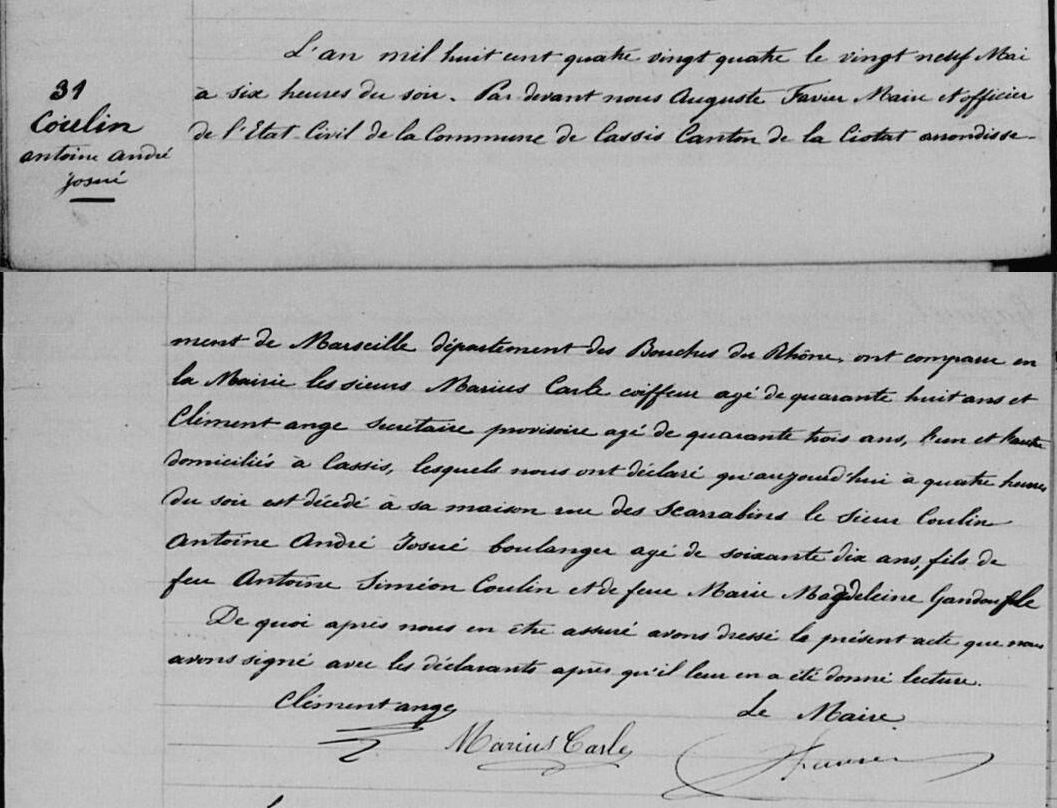 31
Coulin
antoine andré
josué
L'an mil huit cent quatre vingt quatre le vingt neuf Mai
à six heures du soir. Par devant nous Auguste Favier Maire et officier
de l'Etat Civil de la Commune de Cassis Canton de la Ciotat arrondisse-
ment de Marseille département des Bouches du Rhône, ont comparu en
la Mairie les sieurs Marius Carle coiffeur agé de quarante huit ans et
Clément ange secrétaire provisoire agé de quarante trois ans, l'un et l'autre
domiciliés à Cassis, lesquels nous ont déclaré qu'aujourd'hui à quatre heures
du soir est décédé à sa maison rue des Scarrabins le sieur Coulin
Antoine André Josué boulanger agé de soixante dix ans, fils de
feu Antoine Siméon Coulin et de feue Marie Magdeleine
De quoi après nous en être assuré avons dressé le présent acte que nous
avons signé avec les déclarants après qu'il leur en a été donné lecture.
Clément ange
Le Maire
Marius Carle